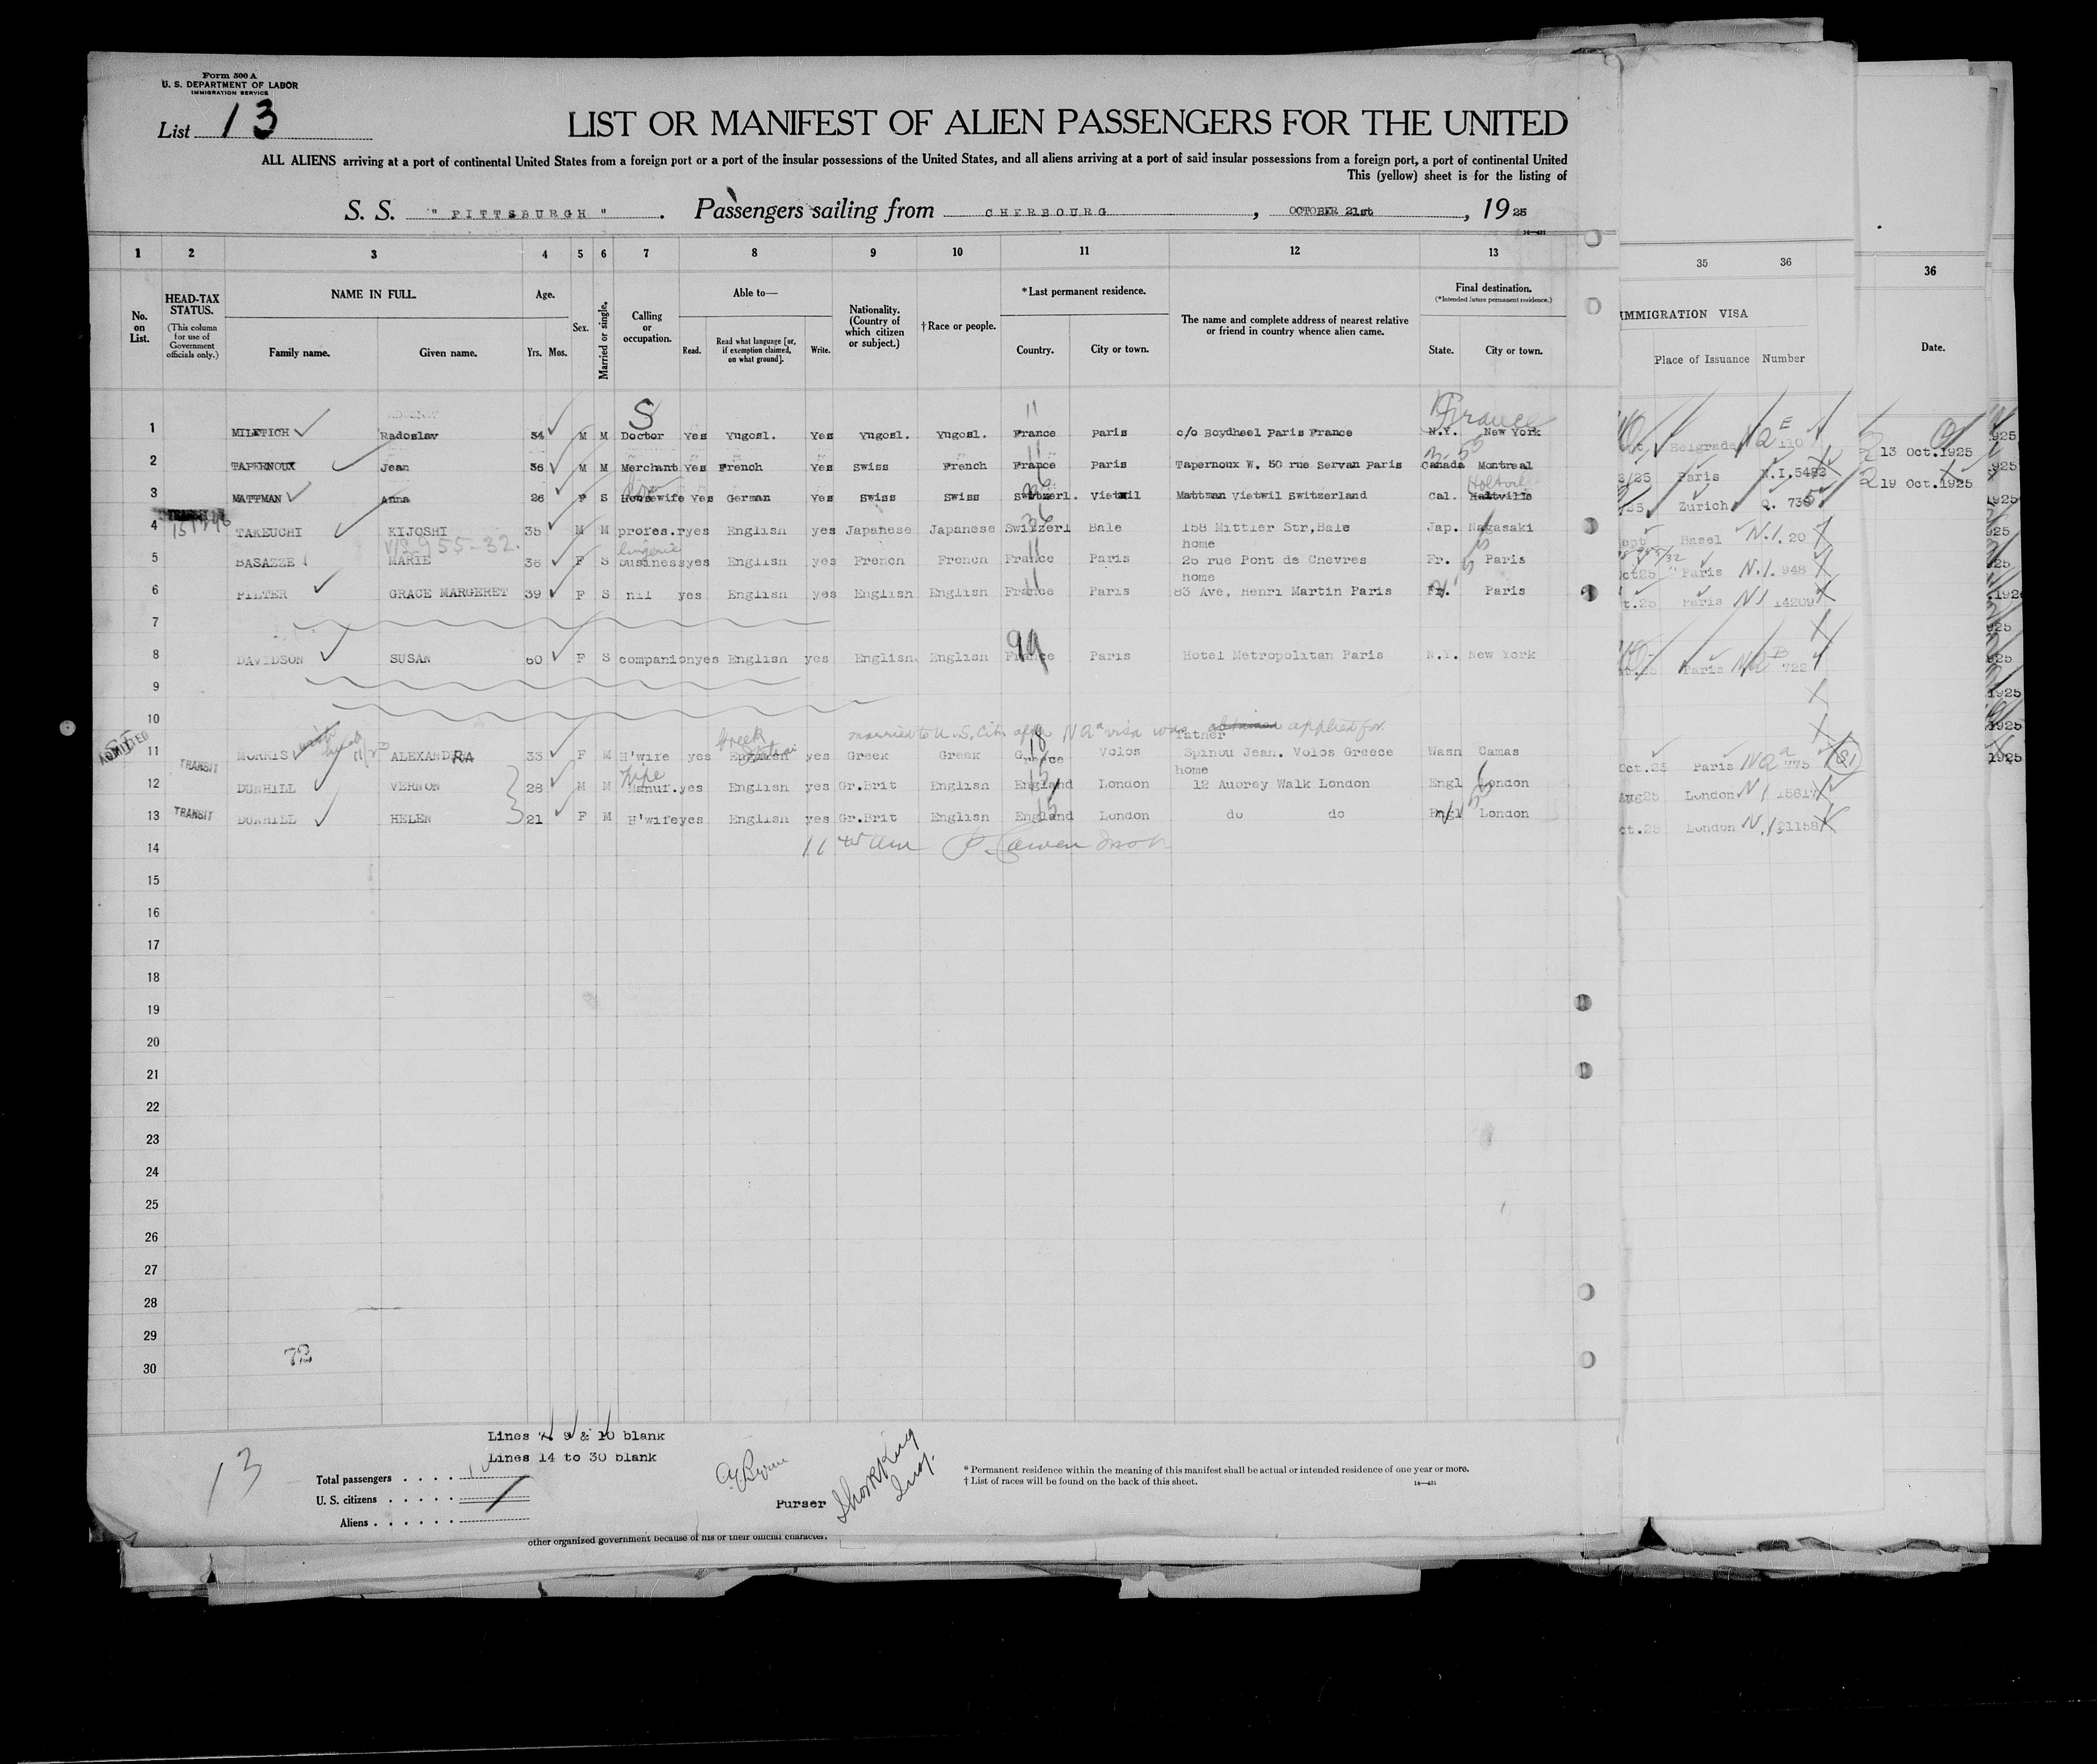 Form 500 A
U. S. DEPARTMENT OF LABOR
IMMIGRATION SERVICE
List 13
LIST OR MANIFEST OF ALIEN PASSENGERS FOR THE UNITED
ALL ALIENS arriving at a port of continental United States from a foreign port or a port of the insular possessions of the United States, and all aliens arriving at a port of said insular possessions from a foreign port, a port of continental United
This (yellow) sheet is for the listing of
S. S. "PITTSBURGH". Passengers sailing from CHERBOURG, OCTOBER 21st, 1925
1 2 3 4 5 6 7 8 9 10 11 12 13 35 36 36
No. on List.
HEAD-TAX STATUS.
(This column for use of Government officials only.)
NAME IN FULL.
Family name. Given name.
Age.
Yrs. Mos.
Sex.
Married or single.
Calling or occupation.
Able to—
Read. Read what language [or, if exemption claimed, on what ground]. Write.
Nationality. (Country of which citizen or subject.)
†Race or people.
*Last permanent residence.
Country. City or town.
The name and complete address of nearest relative or friend in country whence alien came.
Final destination.
(*Intended future permanent residence.)
State. City or town.
IMMIGRATION VISA
Place of Issuance Number
Date.
S 11 France
1 MILETICH Radoslav 34 M M Doctor Yes Yugosl. Yes Yugosl. Yugosl. France Paris c/o Boydheel Paris France N.Y. New York Belgrade 110 13 Oct.1925
2 TAPERNOUX Jean 36 M M Merchant Yes French Yes Swiss French France Paris Tapernoux W. 50 rue Servan Paris Canada Montreal Paris N.I.5482 19 Oct.1925
3 MATTMAN Anna 26 F S Housewife Yes German Yes Swiss Swiss Switzerl. Vietwil Mattman Vietwil Switzerland Cal. Holtville Zurich Q. 735
4 TAKEUCHI KIJOSHI 35 M M profes.r yes English yes Japanese Japanese Switzerl Bale 158 Mittler Str,Bale Jap. Nagasaki Basel N.I. 20
55-32. lingerie home
5 BASAZZE MARIE 38 F S business yes English yes French French France Paris 25 rue Pont de Chevres Fr. Paris Paris N.I. 948
home
6 PILTER GRACE MARGERET 39 F S nil yes English yes English English France Paris 83 Ave, Henri Martin Paris Fr. Paris Paris NI 14209
7
99
8 DAVIDSON SUSAN 60 F S companion yes English yes English. English France Paris Hotel Metropolitan Paris N.Y. New York Paris 722
9
10 married to U.S. Cit. after NQa visa was obtained applied for.
ADMITTED Greek father
11 MORRIS ALEXANDRA 33 F M H'wife yes English yes Greek Greek Greece Volos Spinou Jean. Volos Greece Wasn Camas Oct.25 Paris NQa 775
TRANSIT Pipe home
12 DUNHILL VERNON 28 M M Manuf. yes English yes Gr.Brit English England London 12 Aubrey Walk London Engl London Aug25 London NI 15817
13 TRANSIT DUNHILL HELEN 21 F M H'wife yes English yes Gr.Brit English England London do do Engl London ct.25 London N.I 21158
14
15
16
17
18
19
20
21
22
23
24
25
26
27
28
29
30
72
Lines 7, 9 & 10 blank
Lines 14 to 30 blank
13
Total passengers
U. S. citizens
Aliens
Purser
* Permanent residence within the meaning of this manifest shall be actual or intended residence of one year or more.
† List of races will be found on the back of this sheet.
other organized government because of his or their official character.